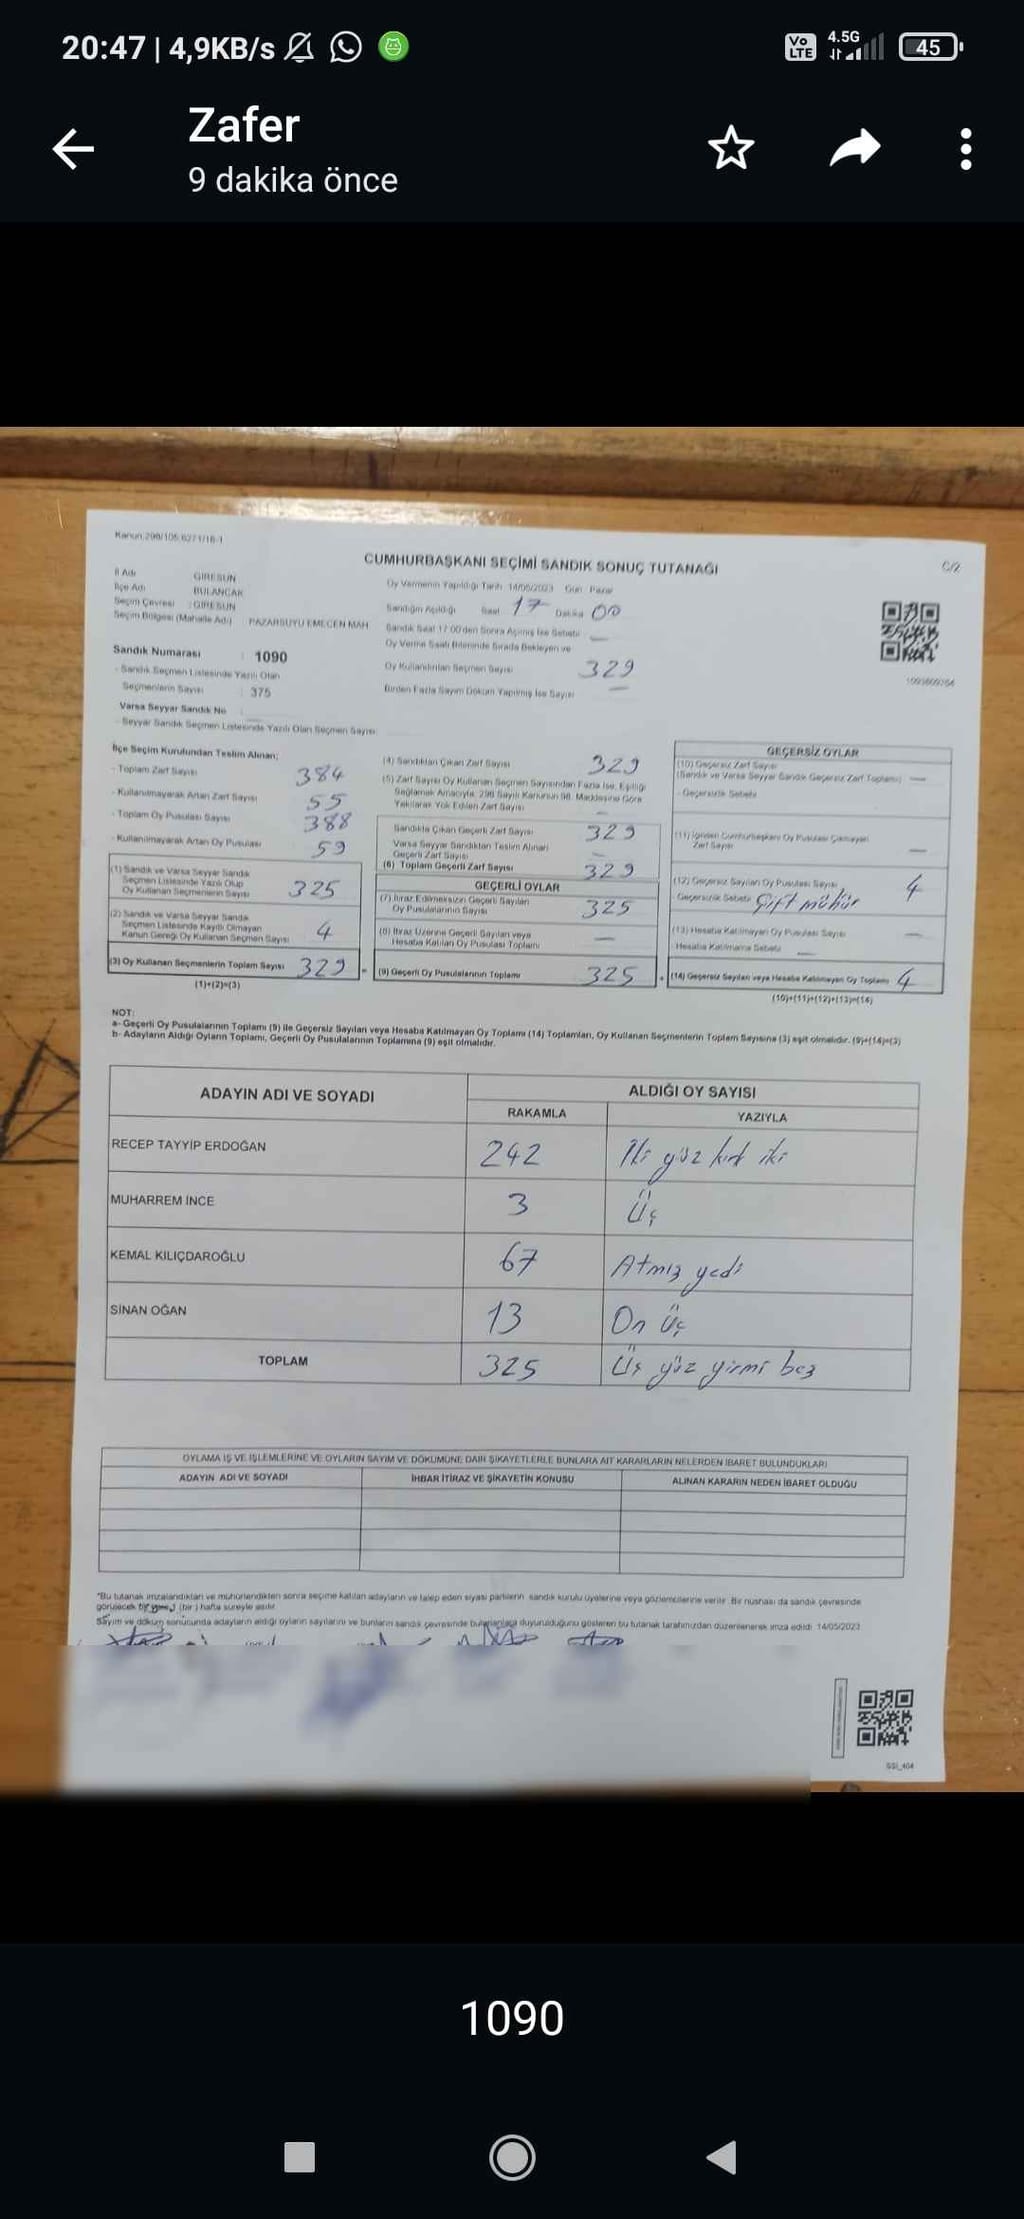 20:47 | 4,9KB/s
Vo LTE 4.5G 45
Zafer
9 dakika önce
Kanun:298/105;6271/18-1
CUMHURBAŞKANI SEÇİMİ SANDIK SONUÇ TUTANAĞI
C/2
İl Adı GİRESUN
İlçe Adı BULANCAK
Seçim Çevresi : GİRESUN
Seçim Bölgesi (Mahalle Adı) PAZARSUYU EMECEN MAH.
Oy Vermenin Yapıldığı Tarih: 14/05/2023 Gün: Pazar
Sandığın Açıldığı Saat 17 Dakika 00
Sandık Saat 17:00'den Sonra Açılmış İse Sebebi
Oy Verme Saati Bitiminde Sırada Bekleyen ve
Oy Kullandırılan Seçmen Sayısı 329
Birden Fazla Sayım Döküm Yapılmış İse Sayısı —
Sandık Numarası : 1090
- Sandık Seçmen Listesinde Yazılı Olan
Seçmenlerin Sayısı : 375
Varsa Seyyar Sandık No
- Seyyar Sandık Seçmen Listesinde Yazılı Olan Seçmen Sayısı
İlçe Seçim Kurulundan Teslim Alınan;
- Toplam Zarf Sayısı 384
- Kullanılmayarak Artan Zarf Sayısı 55
- Toplam Oy Pusulası Sayısı 388
- Kullanılmayarak Artan Oy Pusulası 59
(1) Sandık ve Varsa Seyyar Sandık
Seçmen Listesinde Yazılı Olup
Oy Kullanan Seçmenlerin Sayısı 325
(2) Sandık ve Varsa Seyyar Sandık
Seçmen Listesinde Kayıtlı Olmayan
Kanun Gereği Oy Kullanan Seçmen Sayısı 4
(3) Oy Kullanan Seçmenlerin Toplam Sayısı 329
(1)+(2)=(3)
(4) Sandıktan Çıkan Zarf Sayısı 329
(5) Zarf Sayısı Oy Kullanan Seçmen Sayısından Fazla İse, Eşitliği
Sağlamak Amacıyla, 298 Sayılı Kanunun 98. Maddesine Göre
Yakılarak Yok Edilen Zarf Sayısı —
Sandıkta Çıkan Geçerli Zarf Sayısı 329
Varsa Seyyar Sandıktan Teslim Alınan
Geçerli Zarf Sayısı —
(6) Toplam Geçerli Zarf Sayısı 329
GEÇERLİ OYLAR
(7) İtiraz Edilmeksizin Geçerli Sayılan
Oy Pusulalarının Sayısı 325
(8) İtiraz Üzerine Geçerli Sayılan veya
Hesaba Katılan Oy Pusulası Toplamı —
(9) Geçerli Oy Pusulalarının Toplamı 325
GEÇERSİZ OYLAR
(10) Geçersiz Zarf Sayısı
(Sandık ve Varsa Seyyar Sandık Geçersiz Zarf Toplamı) —
- Geçersizlik Sebebi
(11) İçinden Cumhurbaşkanı Oy Pusulası Çıkmayan
Zarf Sayısı —
(12) Geçersiz Sayılan Oy Pusulası Sayısı 4
Geçersizlik Sebebi Çift mühür
(13) Hesaba Katılmayan Oy Pusulası Sayısı —
Hesaba Katılmama Sebebi —
(14) Geçersiz Sayılan veya Hesaba Katılmayan Oy Toplamı 4
(10)+(11)+(12)+(13)=(14)
NOT:
a- Geçerli Oy Pusulalarının Toplamı (9) ile Geçersiz Sayılan veya Hesaba Katılmayan Oy Toplamı (14) Toplamları, Oy Kullanan Seçmenlerin Toplam Sayısına (3) eşit olmalıdır. (9)+(14)=(3)
b- Adayların Aldığı Oyların Toplamı, Geçerli Oy Pusulalarının Toplamına (9) eşit olmalıdır.
ADAYIN ADI VE SOYADI
ALDIĞI OY SAYISI
RAKAMLA YAZIYLA
RECEP TAYYİP ERDOĞAN 242 İki yüz kırk iki
MUHARREM İNCE 3 Üç
KEMAL KILIÇDAROĞLU 67 Atmış yedi
SİNAN OĞAN 13 On üç
TOPLAM 325 Üç yüz yirmi beş
OYLAMA İŞ VE İŞLEMLERİNE VE OYLARIN SAYIM VE DÖKÜMÜNE DAİR ŞİKAYETLERLE BUNLARA AİT KARARLARIN NELERDEN İBARET BULUNDUKLARI
ADAYIN ADI VE SOYADI İHBAR İTİRAZ VE ŞİKAYETİN KONUSU ALINAN KARARIN NEDEN İBARET OLDUĞU
*Bu tutanak imzalandıktan ve mühürlendikten sonra seçime katılan adayların ve talep eden siyasi partilerin sandık kurulu üyelerine veya gözlemcilerine verilir. Bir nüshası da sandık çevresinde
görülecek bir yere 1 (bir) hafta süreyle asılır.
Sayım ve döküm sonucunda adayların aldığı oyların sayılarını ve bunların sandık çevresinde bulunanlara duyurulduğunu gösteren bu tutanak tarafımızdan düzenlenerek imza edildi. 14/05/2023
SSI_404
1090